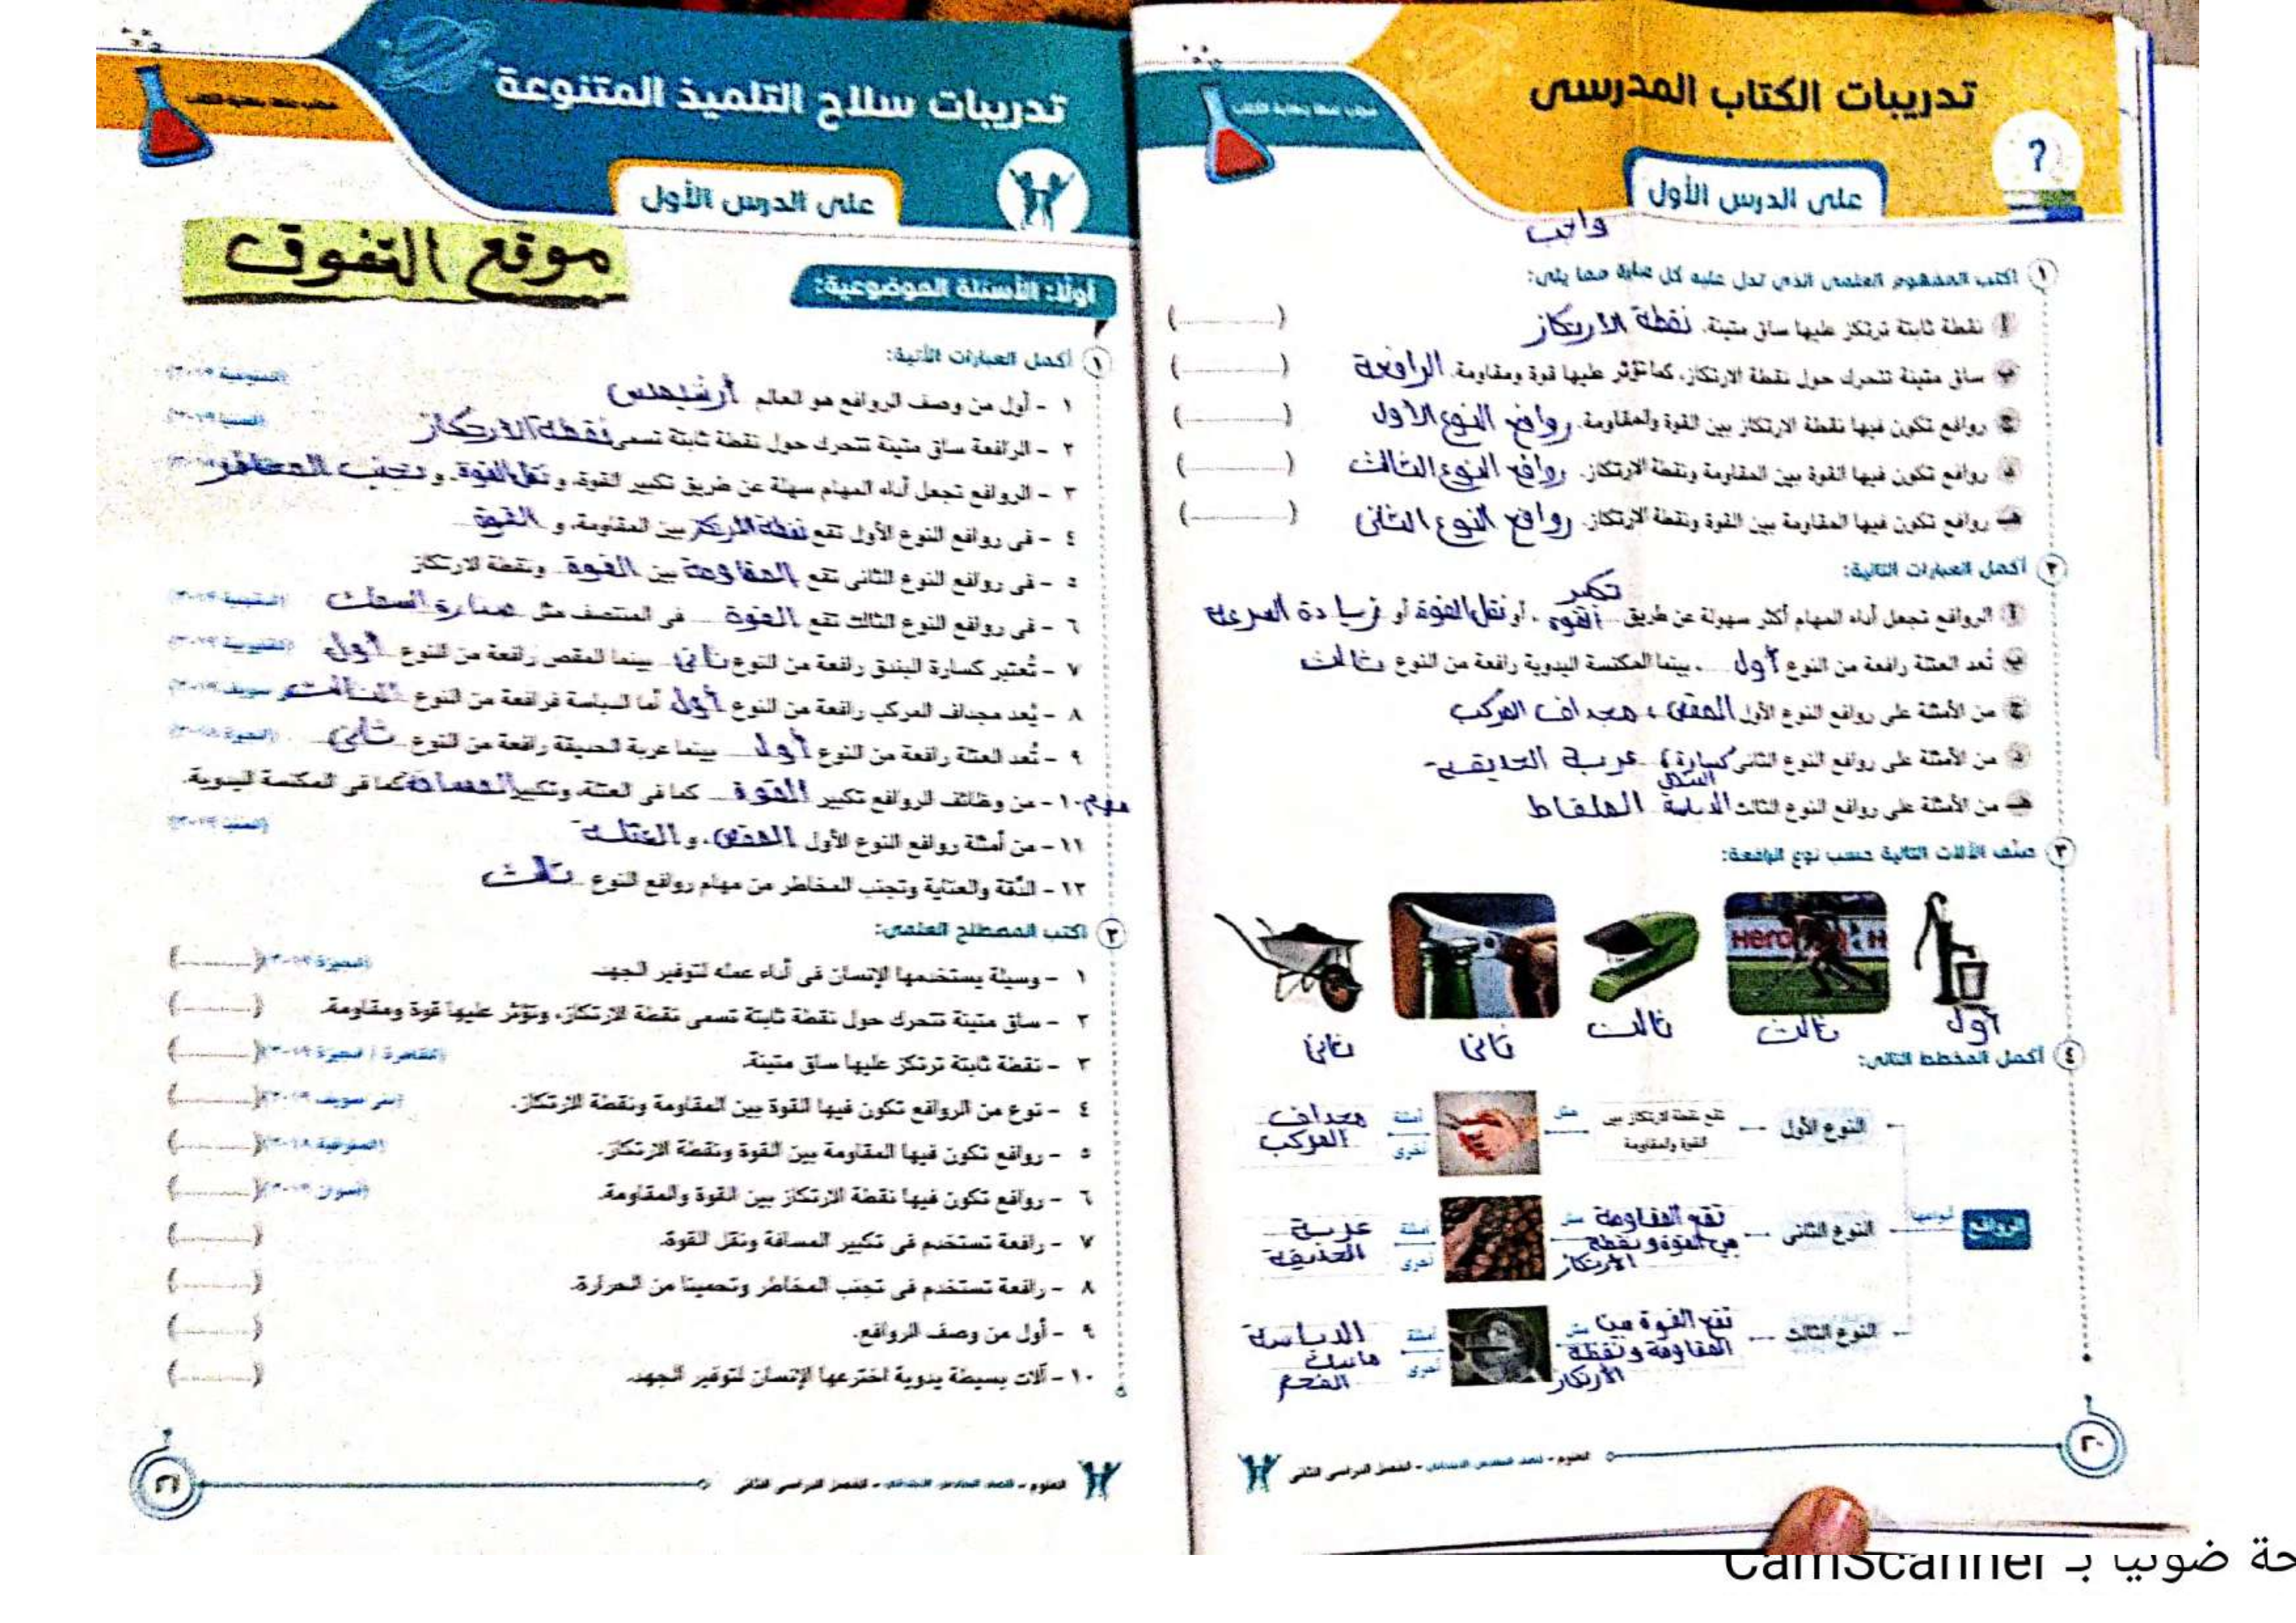 تدريبات الكتاب المدرسى
على الدرس الأول
واجب
١ اكتب المفهوم العلمى الذى تدل عليه كل عبارة مما يلى:
أ نقطة ثابتة ترتكز عليها ساق متينة. نقطة الارتكاز (............)
ب ساق متينة تتحرك حول نقطة الارتكاز، كما تؤثر عليها قوة ومقاومة. الرافعة (............)
ج روافع تكون فيها نقطة الارتكاز بين القوة والمقاومة. روافع النوع الأول (............)
د روافع تكون فيها القوة بين المقاومة ونقطة الارتكاز. روافع النوع الثالث (............)
هـ روافع تكون فيها المقاومة بين القوة ونقطة الارتكاز. روافع النوع الثانى (............)
٢ أكمل العبارات التالية:
أ الروافع تجعل أداء المهام أكثر سهولة عن طريق تكبير القوة، أو نقل القوة أو زيادة السرعة
ب تُعد العتلة رافعة من النوع أول، بينما المكنسة اليدوية رافعة من النوع ثالث
ج من الأمثلة على روافع النوع الأول المقص، مجداف المركب
د من الأمثلة على روافع النوع الثانى كسارة البندق، عربة الحديقة
هـ من الأمثلة على روافع النوع الثالث الدباسة الملقاط
٣ صنف الآلات التالية حسب نوع الرافعة:
أول ثالث ثالث ثانى ثانى
٤ أكمل المخطط التالى:
الروافع أنواعها
النوع الأول تقع نقطة الارتكاز بين القوة والمقاومة مثل أمثلة أخرى مجداف المركب
النوع الثانى تقع المقاومة بين القوة ونقطة الارتكاز مثل أمثلة أخرى عربة الحديقة
النوع الثالث تقع القوة بين المقاومة ونقطة الارتكاز مثل أمثلة أخرى الدباسة ماسك الفحم
٢٠
العلوم - الصف السادس الابتدائى - الفصل الدراسى الثانى
تدريبات سلاح التلميذ المتنوعة
على الدرس الأول
موقع التفوق
أولًا: الأسئلة الموضوعية:
١ أكمل العبارات الآتية:
١ - أول من وصف الروافع هو العالم أرشيميدس (المنوفية ٢٠١٩)
٢ - الرافعة ساق متينة تتحرك حول نقطة ثابتة تسمى نقطة الارتكاز
٣ - الروافع تجعل أداء المهام سهلة عن طريق تكبير القوة، و نقل القوة و تجنب المخاطر
٤ - فى روافع النوع الأول تقع نقطة الارتكاز بين المقاومة، و القوة
٥ - فى روافع النوع الثانى تقع المقاومة بين القوة ونقطة الارتكاز
٦ - فى روافع النوع الثالث تقع القوة فى المنتصف مثل صنارة السمك
٧ - تُعتبر كسارة البندق رافعة من النوع ثانى بينما المقص رافعة من النوع أول (القليوبية ٢٠١٩)
٨ - يُعد مجداف المركب رافعة من النوع أول أما الدباسة فرافعة من النوع الثالث
٩ - تُعد العتلة رافعة من النوع أول بينما عربة الحديقة رافعة من النوع ثانى (الجيزة ٢٠١٨)
مهم ١٠ - من وظائف الروافع تكبير القوة كما فى العتلة، وتكبير المسافة كما فى المكنسة اليدوية.
١١ - من أمثلة روافع النوع الأول المقص، و العتلة
١٢ - الدقة والعناية وتجنب المخاطر من مهام روافع النوع ثالث
٢ اكتب المصطلح العلمى:
١ - وسيلة يستخدمها الإنسان فى أداء عمله لتوفير الجهد. (الجيزة ٢٠١٩) (............)
٢ - ساق متينة تتحرك حول نقطة ثابتة تسمى نقطة الارتكاز، وتؤثر عليها قوة ومقاومة. (............)
٣ - نقطة ثابتة ترتكز عليها ساق متينة. (القاهرة / الجيزة ٢٠١٩) (............)
٤ - نوع من الروافع تكون فيها القوة بين المقاومة ونقطة الارتكاز. (بنى سويف ٢٠١٩) (............)
٥ - روافع تكون فيها المقاومة بين القوة ونقطة الارتكاز. (............)
٦ - روافع تكون فيها نقطة الارتكاز بين القوة والمقاومة. (أسوان ٢٠١٩) (............)
٧ - رافعة تستخدم فى تكبير المسافة ونقل القوة. (............)
٨ - رافعة تستخدم فى تجنب المخاطر وتحمينا من الحرارة. (............)
٩ - أول من وصف الروافع. (............)
١٠ - آلات بسيطة يدوية اخترعها الإنسان لتوفير الجهد. (............)
العلوم - الصف السادس الابتدائى - الفصل الدراسى الثانى
٢١
حة ضوئيا بـ CamScanner